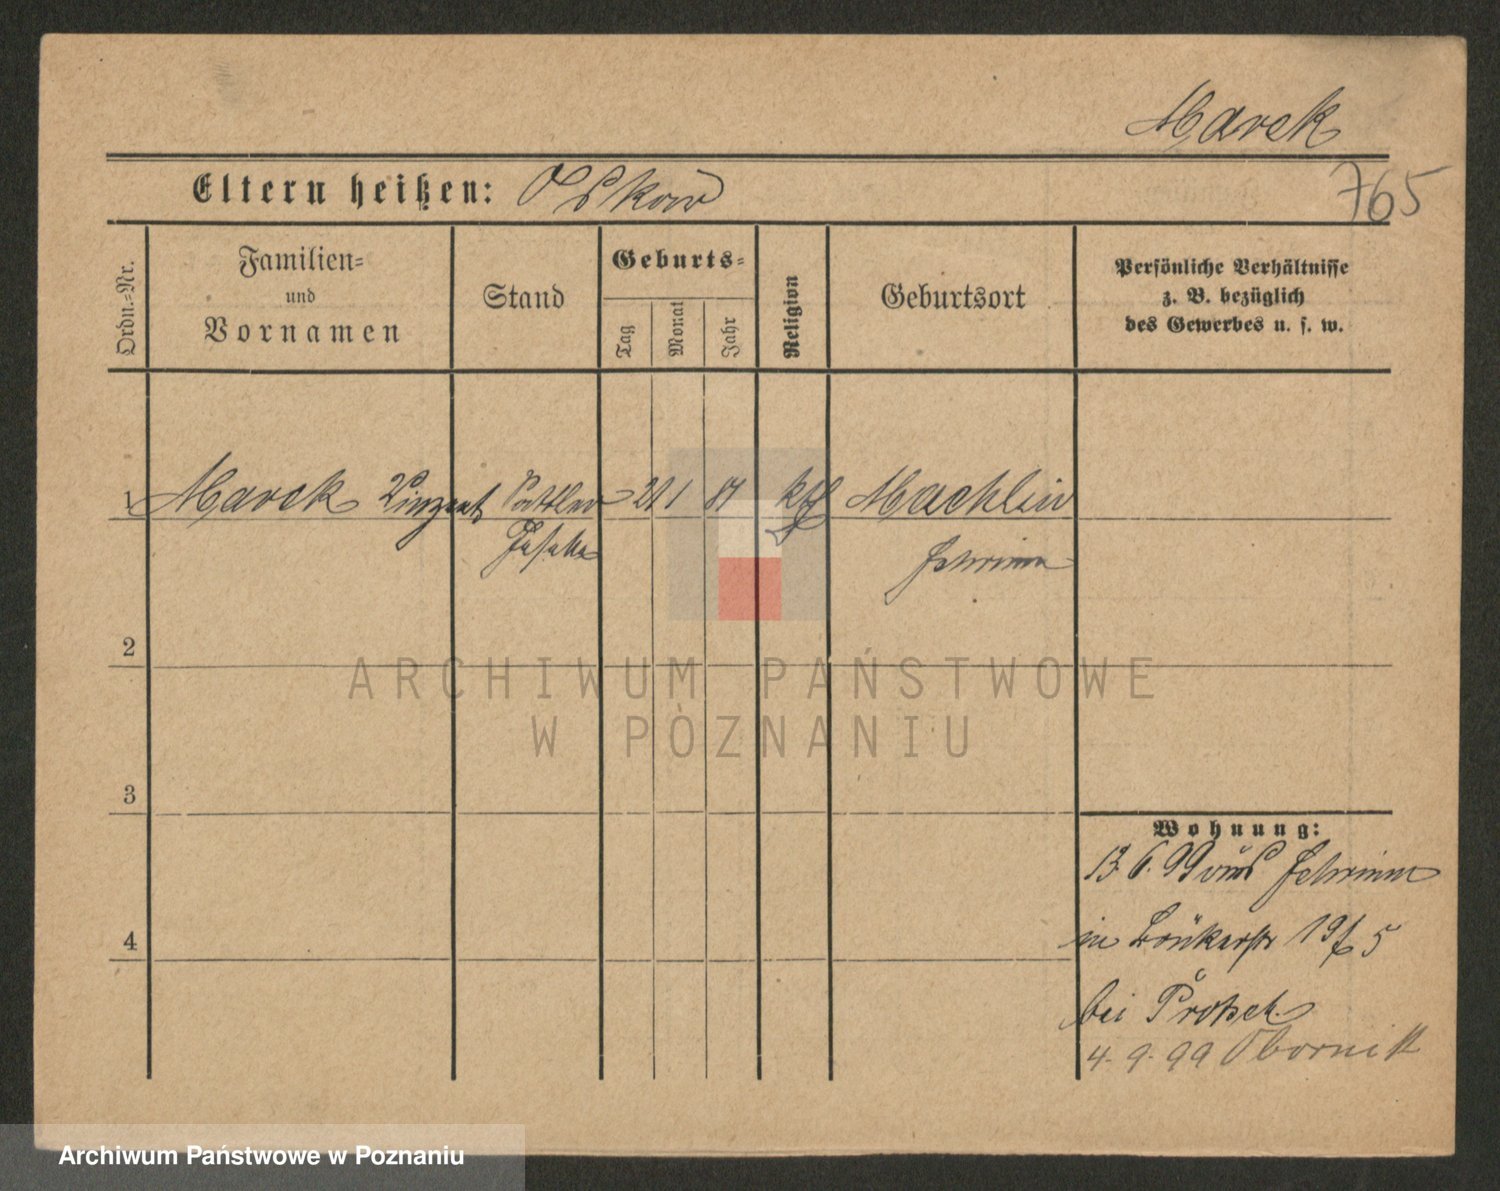 Marck
Eltern heißen:
765
Ordn.-Nr.
Familien-
und
Vornamen
Stand
Geburts-
Tag
Monat
Jahr
Religion
Geburtsort
Persönliche Verhältnisse
z. B. bezüglich
des Gewerbes u. s. w.
1 Marck Vinzent Sattler 21 1 81 kth Machlin
Schrimm
2
3
4
Wohnung:
13. 6. 99 aus Schrimm
in 19/5
bei
4. 9. 99 Obornik
ARCHIWUM PAŃSTWOWE
W POZNANIU
Archiwum Państwowe w Poznaniu